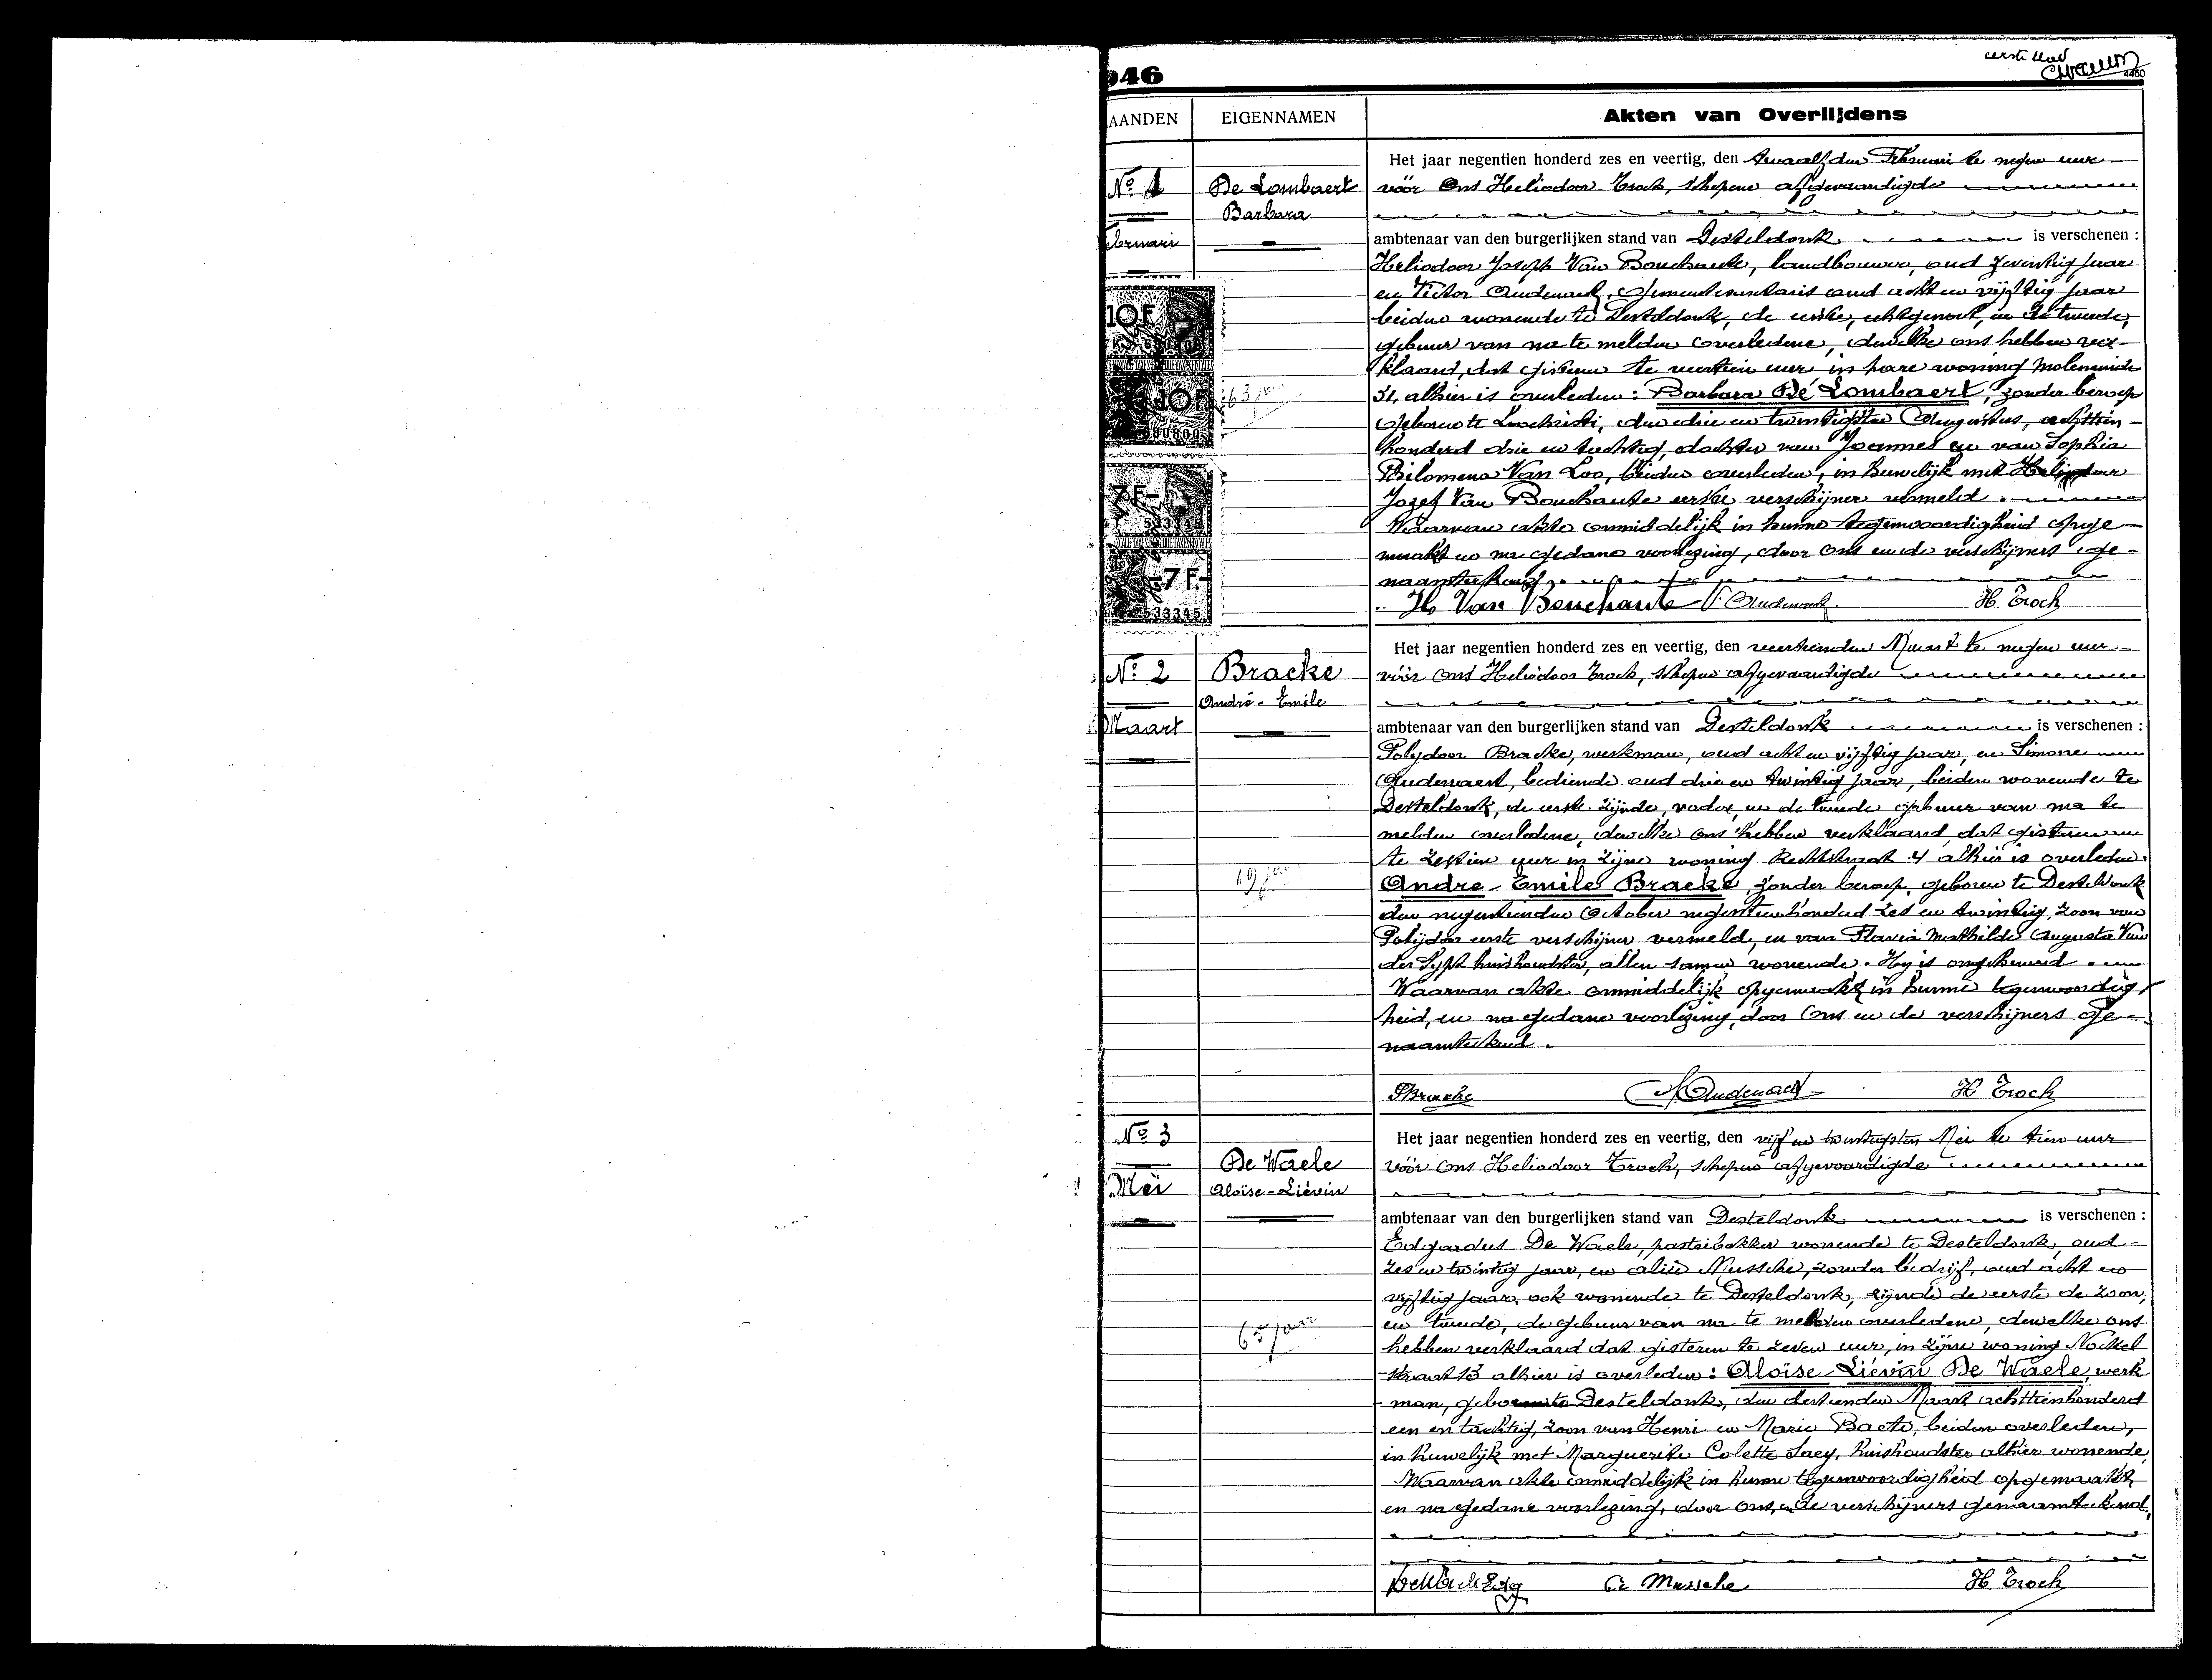 946
eerste blad
4460
AANDEN
EIGENNAMEN
Akten van Overlijdens
No 1
ebruari
De Lombaert
Barbara
63 jaar
10F
10F
7F-
533345
-7F-
533345
Het jaar negentien honderd zes en veertig, den twaalfden Februari te negen uur
vóór Ons Heliodoor Troch, schepene afgevaardigde
ambtenaar van den burgerlijken stand van Desteldonk is verschenen :
Heliodoor Joseph Van Bouchaute, landbouwer, oud zeventig jaar
en Victor Oudenaert, gemeentesecretaris oud acht en vijftig jaar
beiden wonende te Desteldonk, de eerste, echtgenoot, en de tweede,
gebuur van na te melden overledene, dewelke ons hebben ver-
klaard, dat gisteren te veertien uur in hare woning Moleneinde
31, alhier is overleden : Barbara De Lombaert, zonder beroep
geboren te Loochristi, den drie en twintigsten Augustus, achttien-
honderd drie en tachtig, dochter van Joannes en van Sophia
Philomena Van Loo, beiden overleden, in huwelijk met Heliodoor
Jozef Van Bouchaute eerste verschijner vermeld.
Waarvan akte onmiddelijk in hunne tegenwoordigheid opge-
maakt en na gedane voorlezing, door ons en de verschijners ge-
naamteekend.
H Van Bouchaute V. Oudenaert. H. Troch
No 2
Maart
Bracke
André - Emile
19 jaar
Het jaar negentien honderd zes en veertig, den veertienden Maart te negen uur
vóór Ons Heliodoor Troch, schepen afgevaardigde
ambtenaar van den burgerlijken stand van Desteldonk is verschenen :
Polydoor Bracke, werkman, oud acht en vijftig jaar, en Simone
Oudenaert, bediende oud drie en twintig jaar, beiden wonende te
Desteldonk, de eerste zijnde, vader, en de tweede gebuur van na te
melden overledene, dewelke ons hebben verklaard, dat gisteren
te zestien uur in zijne woning Rechtstraat 4 alhier is overleden
Andre - Emile Bracke, zonder beroep, geboren te Desteldonk
den negentienden October negentienhonderd zes en twintig, zoon van
Polijdoor eerste verschijner vermeld, en van Flavia Mathilde Augusta Van
der Sypt huishoudster, allen samen wonende. Hij is ongehuwd.
Waarvan akte onmiddelijk opgemaakt, in hunne tegenwoordig-
heid, en na gedane voorlezing, door Ons en de verschijners ge-
naamteekend.
PBracke S Oudenaert H Troch
No 3
Mei
De Waele
Aloïse - Liévin
65 jaar
Het jaar negentien honderd zes en veertig, den vijf en twintigsten Mei te tien uur
vóór Ons Heliodoor Troch, schepen afgevaardigde
ambtenaar van den burgerlijken stand van Desteldonk is verschenen :
Edgardus De Waele, pasteibakker wonende te Desteldonk, oud
zes en twintig jaar, en Alice Mussche, zonder bedrijf, oud acht en
vijftig jaar, ook wonende te Desteldonk, zijnde de eerste de zoon,
en tweede, de gebuur van na te melden overledene, dewelke ons
hebben verklaard dat gisteren te zeven uur, in zijne woning
straat 13 alhier is overleden : Aloïse - Liévin De Waele, werk
man, geboren te Desteldonk, den dertienden Maart achttienhonderd
een en tachtig, zoon van Henri en Marie Baete, beiden overleden,
in huwelijk met Marguerite Colette Saey, huishoudster alhier wonende,
Waarvan akte onmiddelijk in hunne tegenwoordigheid opgemaakt,
en na gedane voorlezing, door ons, en de verschijners genaamteekend.
A Mussche H. Troch